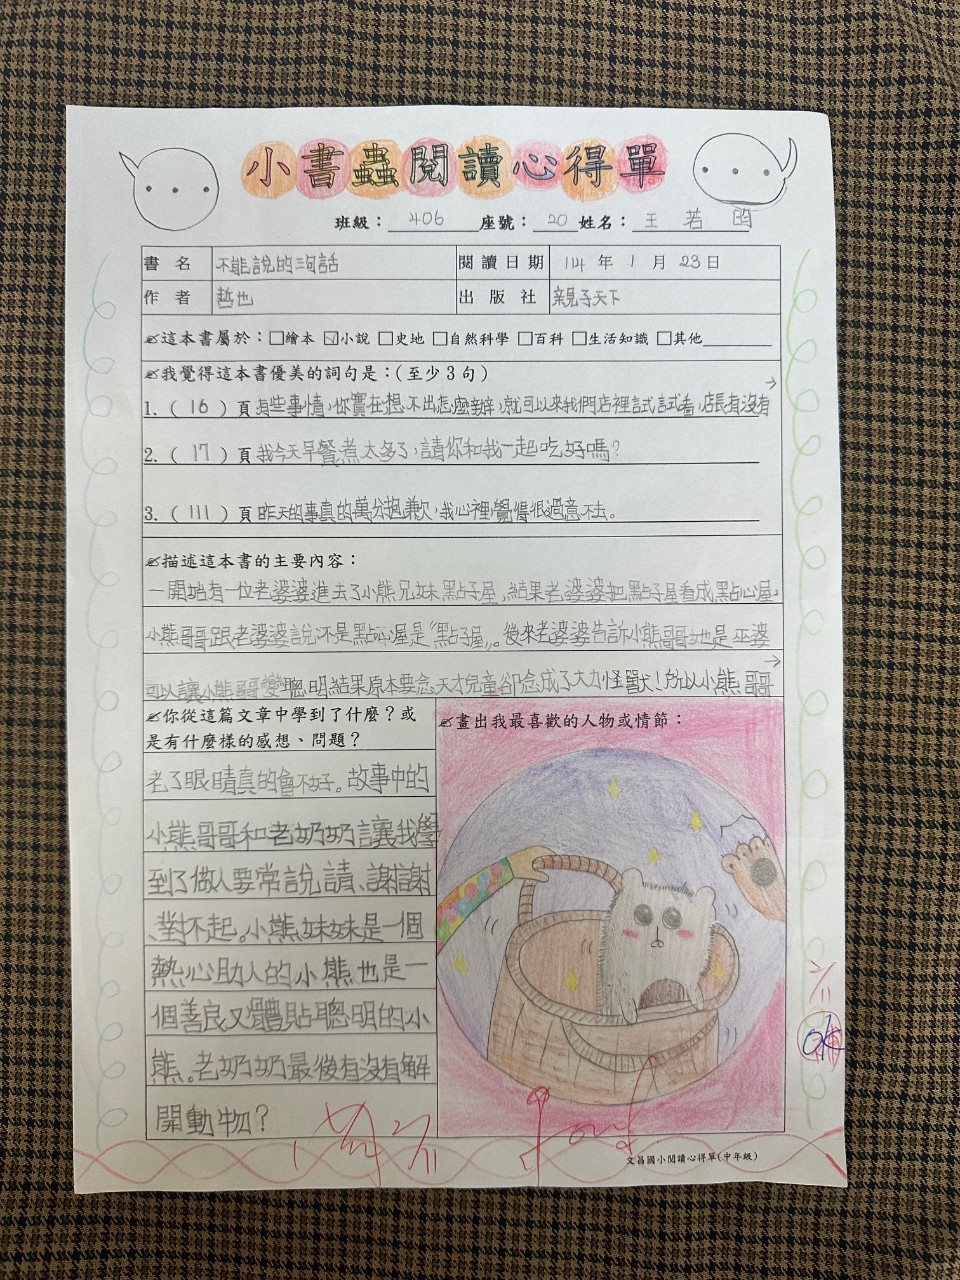 小書蟲閱讀心得單
班級：406 座號：20 姓名：王若
書名 不能說的三句話 閱讀日期 114 年 1 月 23 日
作者 哲也 出版社 親子天下
這本書屬於：□繪本 ☑小說 □史地 □自然科學 □百科 □生活知識 □其他
我覺得這本書優美的詞句是：(至少3句)
→
1.（16）頁 有些事情，你實在想不出怎麼辦，就可以來我們店裡試試看，店長有沒有
2.（17）頁 我今天早餐煮太多了，請你和我一起吃好嗎？
3.（111）頁 昨天的事真的萬分抱歉，我心裡覺得很過意不去。
描述這本書的主要內容：
一開始有一位老婆婆進去了小熊兄妹點子屋，結果老婆婆把點子屋看成點心屋，
小熊哥哥跟老婆婆說不是點心屋是「點子屋」。後來老婆婆告訴小熊哥哥她是巫婆
→
可以讓小熊哥哥變聰明結果原本要念天才兒童卻念成了大力怪獸！所以小熊哥哥
你從這篇文章中學到了什麼？或
是有什麼樣的感想、問題？
老了眼睛真的會不好。故事中的
小熊哥哥和老奶奶讓我學
到了做人要常說請、謝謝
、對不起。小熊妹妹是一個
熱心助人的小熊也是一
個善良又體貼聰明的小
熊。老奶奶最後有沒有解
開動物？
畫出我最喜歡的人物或情節：
2/11
ok
2/11
Good
文昌國小閱讀心得單(中年級)